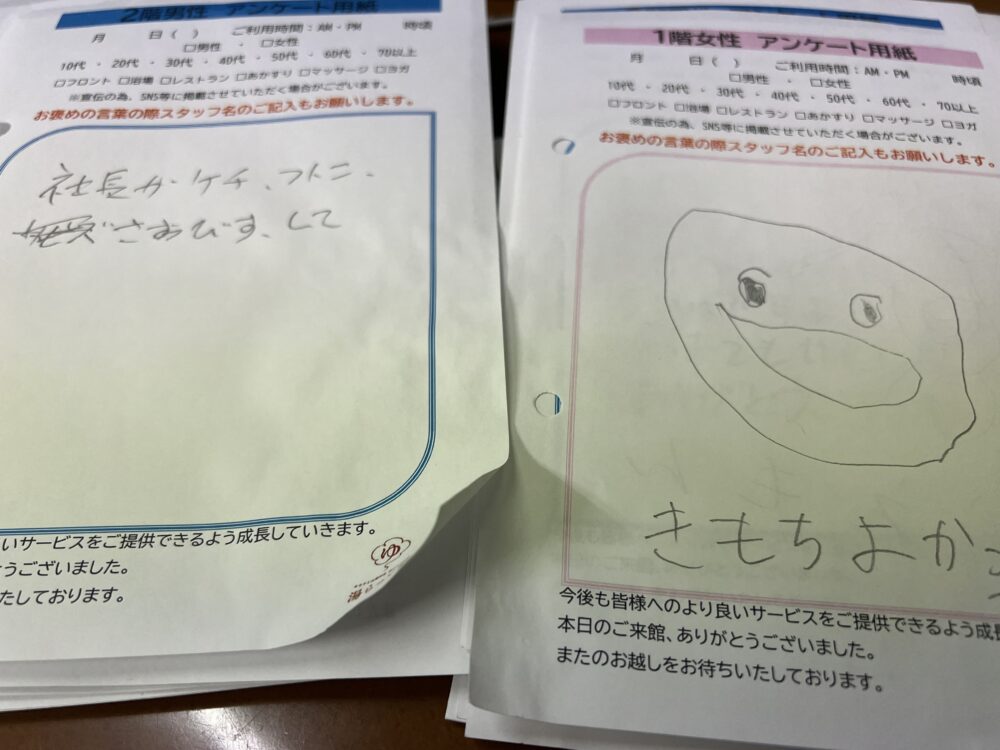 2階男性 アンケート用紙
月 日( ) ご利用時間:AM・PM 時頃
□男性 ・ □女性
10代 ・ 20代 ・ 30代 ・ 40代 ・ 50代 ・ 60代 ・ 70以上
□フロント □浴場 □レストラン □あかすり □マッサージ □ヨガ
※宣伝の為、SNS等に掲載させていただく場合がございます。
お褒めの言葉の際スタッフ名のご記入もお願いします。
社長が・ケチ、フトニ、
さおびす、して
いサービスをご提供できるよう成長していきます。
うございました。
たしております。
ゆ
1階女性 アンケート用紙
月 日( ) ご利用時間:AM・PM 時頃
□男性 ・ □女性
10代 ・ 20代 ・ 30代 ・ 40代 ・ 50代 ・ 60代 ・ 70以上
□フロント □浴場 □レストラン □あかすり □マッサージ □ヨガ
※宣伝の為、SNS等に掲載させていただく場合がございます。
お褒めの言葉の際スタッフ名のご記入もお願いします。
きもちよかっ
今後も皆様へのより良いサービスをご提供できるよう成長
本日のご来館、ありがとうございました。
またのお越しをお待ちいたしております。